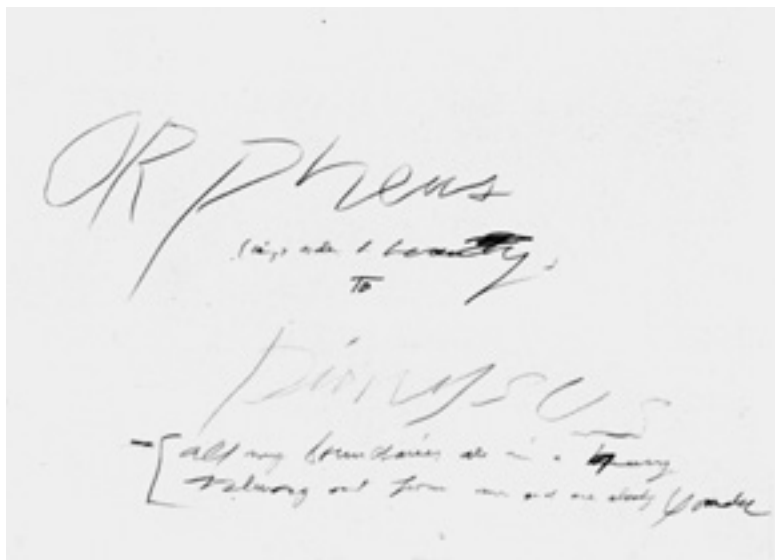 ORpheus
beauty.
To
Dionysus
all my boundaries are in a hurry
out from me and are already yonder